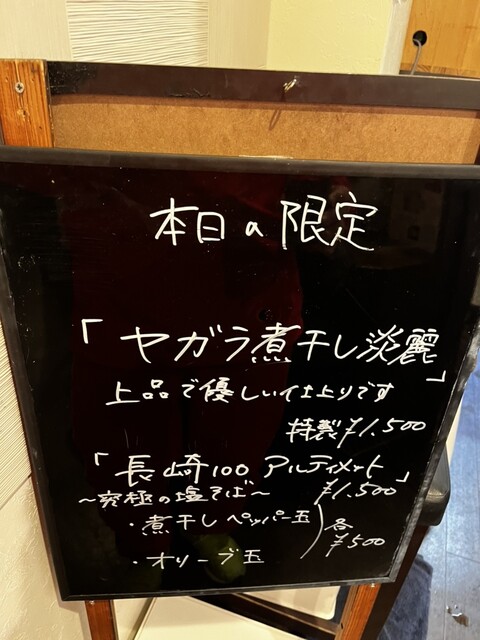 本日の限定
「ヤガラ煮干し淡麗」
上品で優しい仕上りです
特製¥1.500
「長崎100アルティメット」
～究極の塩そば～ ¥1.500
・煮干しペッパー玉
・オリーブ玉
各¥500